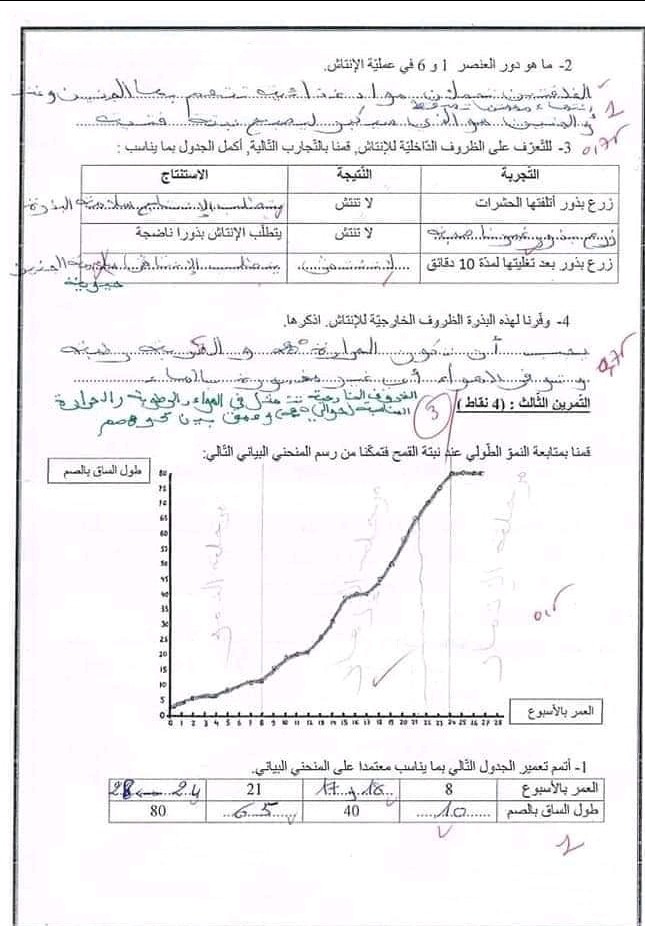 2- ما هو دور العنصر 1 و 6 في عمليّة الإنتاش.
الفلقتين تحملان مواد غذائية تنتهم بها الجنين وعند
و الجنين هو الذي سيكبر ليصبح نبتة فتية
1
0,75
3- للتعرّف على الظروف الدّاخليّة للإنتاش, قمنا بالتّجارب التّالية, أكمل الجدول بما يناسب :
التّجربة النّتيجة الاستنتاج
زرع بذور أتلفتها الحشرات لا تنتش يتطلب الإنتاش سلامة البذرة
زرع بذور غير ناضجة لا تنتش يتطلّب الإنتاش بذورا ناضجة
زرع بذور بعد تغليتها لمدّة 10 دقائق لا تنتش يتطلب الإنتاش الجنين
حيوية
4- وفّرنا لهذه البذرة الظروف الخارجيّة للإنتاش. اذكرها.
يجب أن تكون الحرارة و التربة رطبة
و توفر الهواء أي غير مغمورة بالماء
0,75
الظروف الخارجية تتمثل في الهواء والرطوبة والحرارة
المناسبة لحوالي وعمق بين 3 و 5 صم
التّمرين الثّالث : (4 نقاط)
3
قمنا بمتابعة النموّ الطّولي عند نبتة القمح فتمكّنا من رسم المنحني البياني التّالي:
طول الساق بالصم
80
75
70
65
60
55
50
45
40
35
30
25
20
15
10
5
0
مرحلة النمو
مرحلة
مرحلة
0,5
0 1 2 3 4 5 6 7 8 9 10 11 12 13 14 15 16 17 18 19 20 21 22 23 24 25 26 27 28
العمر بالأسبوع
1- أتمم تعمير الجدول التّالي بما يناسب معتمدا على المنحني البياني.
العمر بالأسبوع 8 16 و 17 21 24 ← 28
طول الساق بالصم 10 40 65 80
1